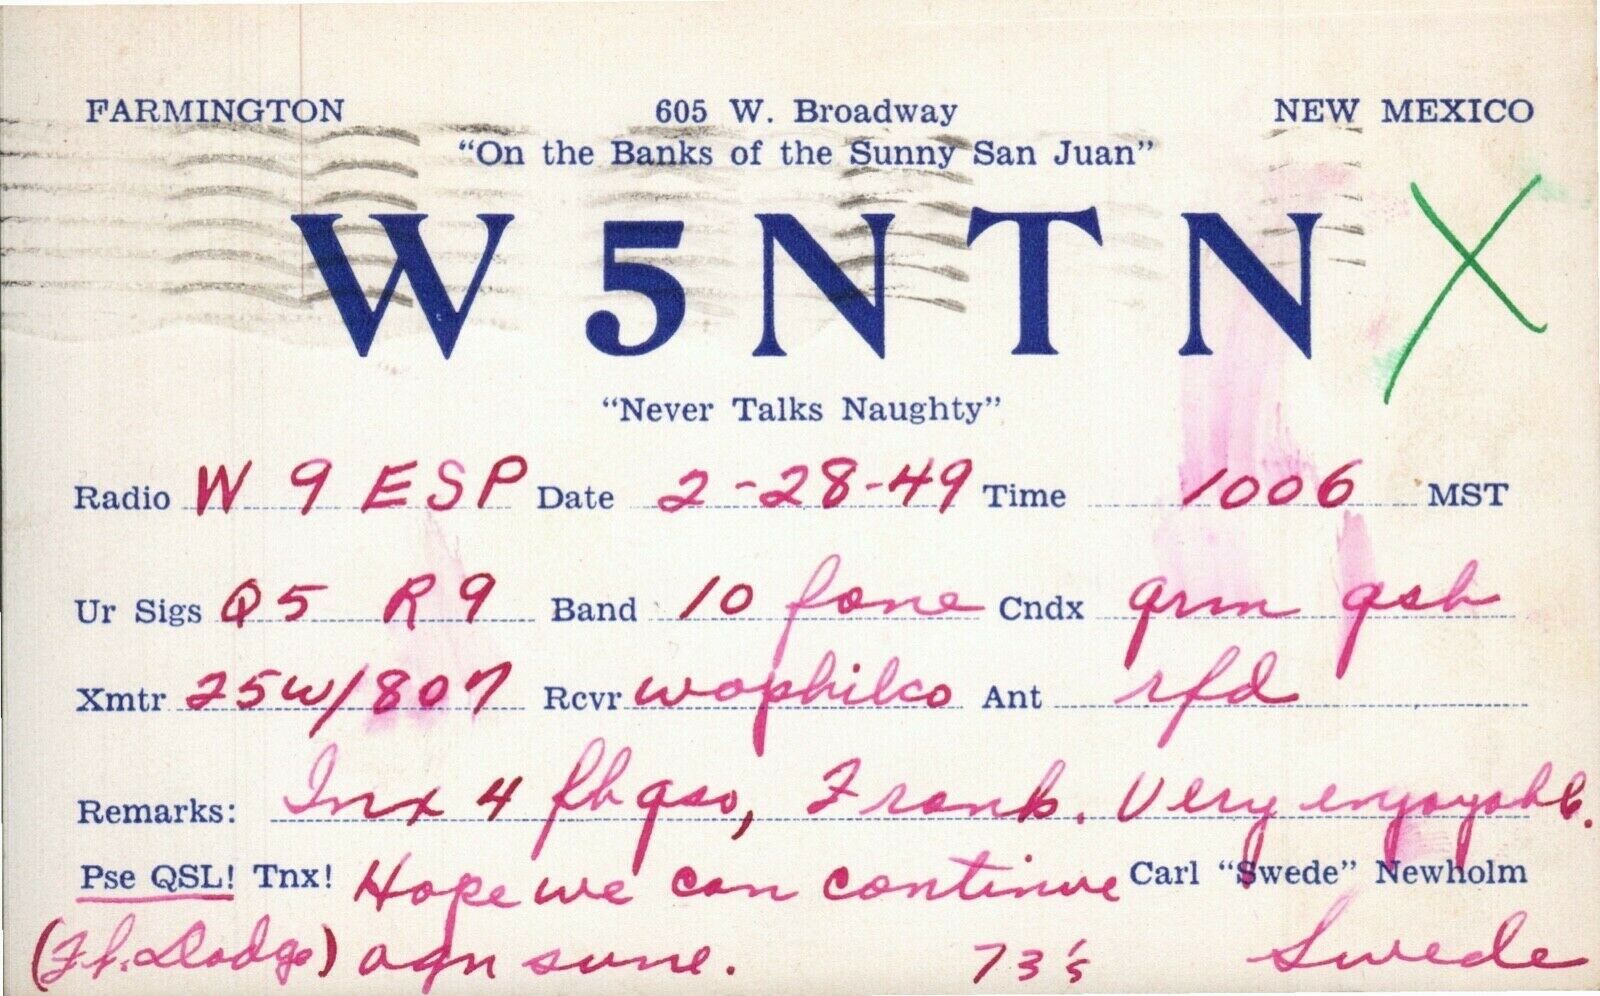 FARMINGTON 605 W. Broadway NEW MEXICO
"On the Banks of the Sunny San Juan"
W5NTN X
"Never Talks Naughty"
Radio W 9 ESP Date 2-28-49 Time 1006 MST
Ur Sigs Q5 R9 Band 10 fone Cndx qrm qsb
Xmtr 25w/807 Rcvr wophilco Ant rfd
Remarks: Tnx 4 fb qso, Frank. Very enjoyable.
Pse QSL! Tnx! Hope we can continue Carl "Swede" Newholm
(Ft. Dodge) agn sune. 73's Swede